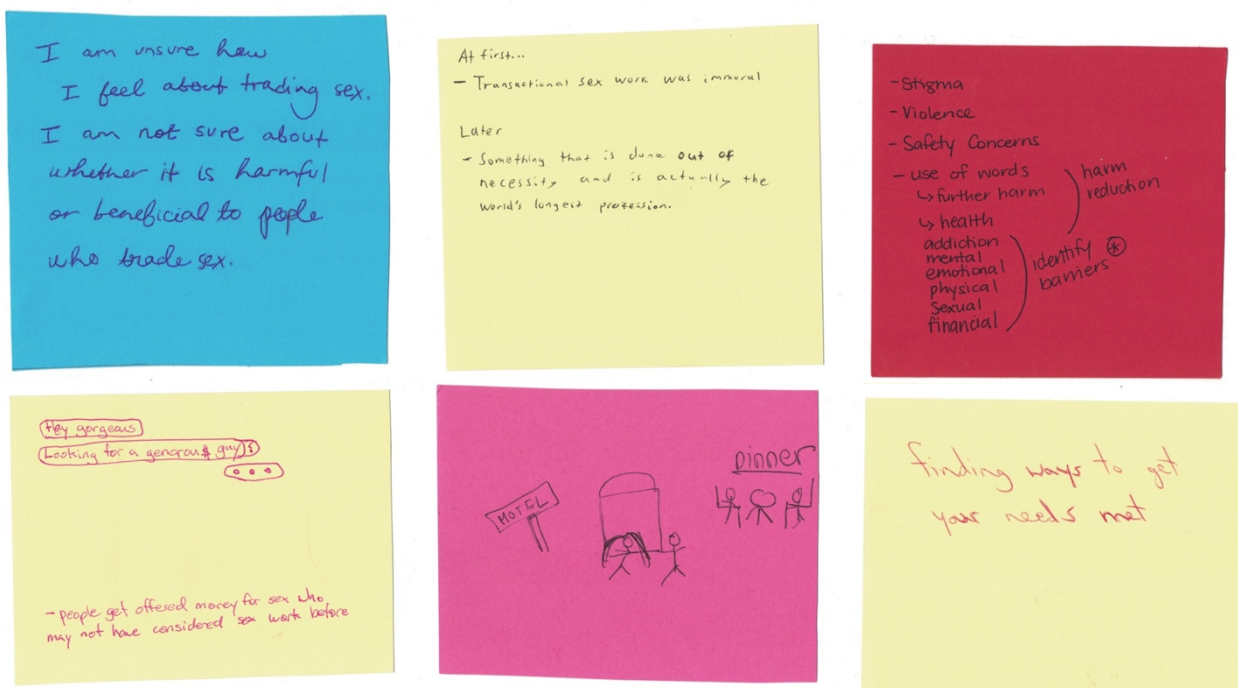 I am unsure how
I feel about trading sex.
I am not sure about
whether it is harmful
or beneficial to people
who trade sex.
At first...
- Transactional sex work was immoral
Later
- Something that is done out of
necessity and is actually the
world's longest profession.
- Stigma
- Violence
- Safety Concerns
- use of words
↳ further harm
harm
reduction
↳ health
addiction
mental
emotional
physical
sexual
financial
identify ⊛
barriers
Hey gorgeous
Looking for a generou$ guy
- people get offered money for sex who
may not have considered sex work before
MOTEL
DINNER
finding ways to get
your needs met